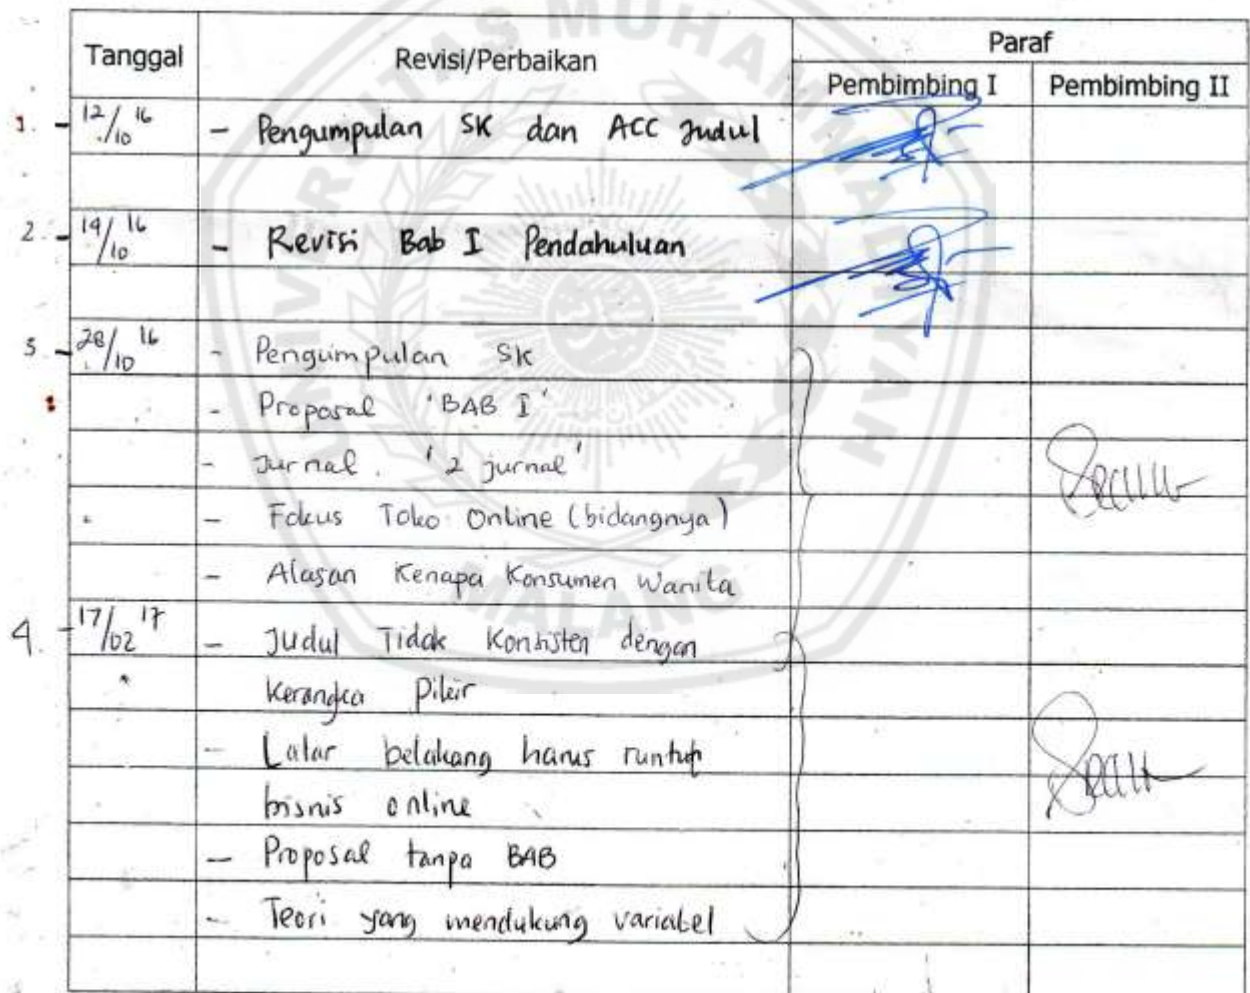 Tanggal Revisi/Perbaikan Paraf
Pembimbing I Pembimbing II
1. - 12/10 16 - Pengumpulan SK dan ACC Judul
2. - 19/10 16 - Revisi Bab I Pendahuluan
3 - 28/10 16 - Pengumpulan SK
- Proposal 'BAB I'
- Jurnal. '2 jurnal'
- Fokus Toko Online (bidangnya)
- Alasan Kenapa Konsumen Wanita
4. - 17/02 17 - Judul Tidak Konsisten dengan
Kerangka Pikir
- Latar belakang harus runtup
bisnis online
- Proposal tanpa BAB
- Teori yang mendukung variabel
UNIVERSITAS MUHAMMADIYAH
MALANG